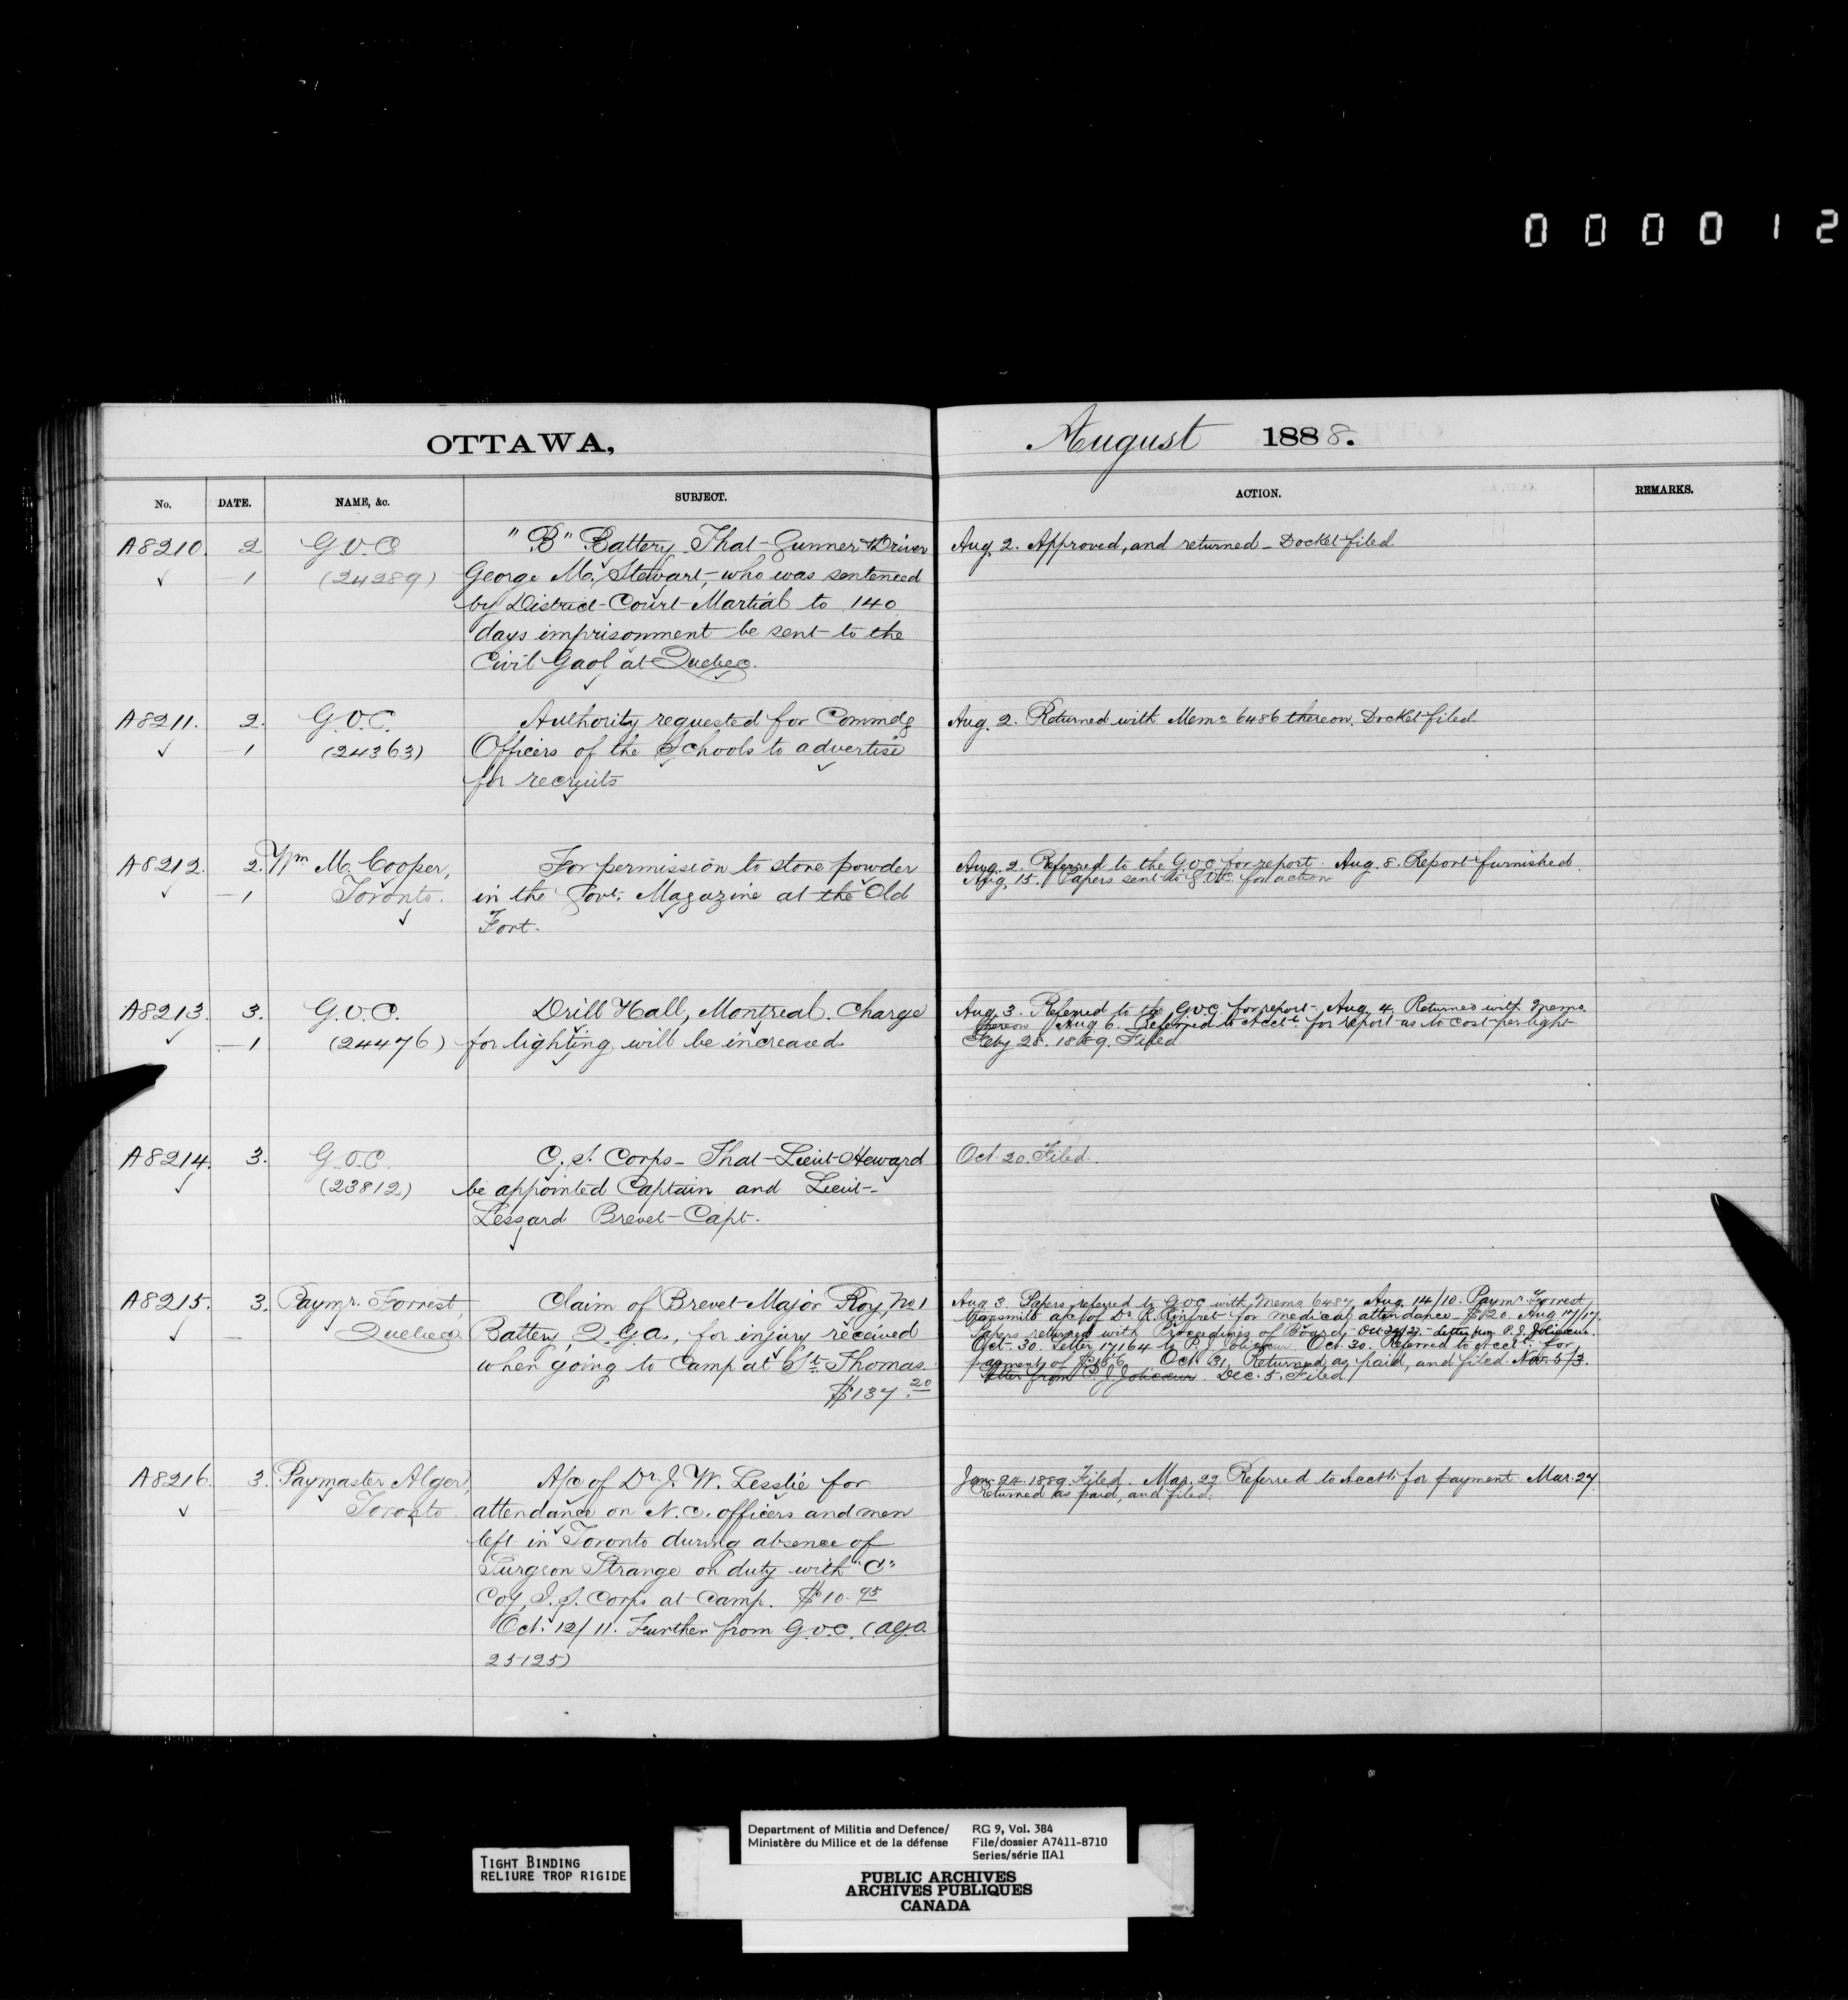 0 0 0 0 1 2
OTTAWA,
August 1888.
No. DATE. NAME, &c. SUBJECT. ACTION. REMARKS.
A8210. 2 G.O.C. "B" Battery. That Gunner & Driver
✓ — 1 (24289) George M. Stewart, who was sentenced
by District Court Martial to 140
days imprisonment be sent to the
Civil Gaol at Quebec.
Aug. 2. Approved, and returned _ Docket filed.
A8211. 2. G.O.C. Authority requested for Commdg
✓ — 1 (24363) Officers of the Schools to advertise
for recruits
Aug. 2. Returned with Memo 6486 thereon. Docket filed.
A8212. 2. Wm M. Cooper, For permission to store powder
✓ — 1 Toronto. in the Govt. Magazine at the Old
Fort.
Aug. 2. Referred to the G.O.C. for report. Aug. 8. Report furnished.
Aug. 15. Papers sent to G.O.C. for action
A8213. 3. G.O.C. Drill Hall, Montreal. Charge
✓ — 1 (24476) for lighting will be increased.
Aug. 3. Referred to the G.O.C. for report. Aug. 4. Returned with memo
thereon Aug. 6. Referred to Acctt. for report as to cost per light
Feby 28. 1889. Filed
A8214. 3. G.O.C. C. S. Corps _ That Lieut Heward
✓ (23812) be appointed Captain and Lieut-
Lessard Brevet-Capt.
Oct. 20. Filed.
A8215. 3. Paymr. Forrest, Claim of Brevet-Major Roy, No 1
✓ — Quebec. Battery Q. G. A., for injury received
when going to Camp at St. Thomas.
$137.20
Aug 3. Papers referred to G.O.C. with Memo 6487 Aug. 14/10. Paymr Forrest
transmits a/c of Dr R. Rinfret for medical attendance $120. Aug 17/17.
Papers returned with Proceedings of Board. Oct 29/27. Letter from P. J. Jolicoeur.
Oct. 30. Letter 17164 to P. J. Jolicoeur Oct. 30. Referred to Acctt. for
payment of Oct. 31. Returned as paid, and filed. Nov. 5/3.
Letter from P. J. Jolicoeur. Dec. 5. Filed
A8216. 3. Paymaster Alger, A/c of Dr J. W. Lesslie for
✓ Toronto. attendance on N. C. officers and men
left in Toronto during absence of
Surgeon Strange on duty with "C"
Coy, I. S. Corps at Camp. $10.95
Oct. 12/11. Further from G.O.C. (A.G.O.
25125)
Jan. 24. 1889. Filed. Mar. 22 Referred to Acctt. for payment Mar. 27.
Returned as paid, and filed.
TIGHT BINDING
RELIURE TROP RIGIDE
Department of Militia and Defence/ RG 9, Vol. 384
Ministère du Milice et de la défense File/dossier A7411-8710
Series/série IIA1
PUBLIC ARCHIVES
ARCHIVES PUBLIQUES
CANADA